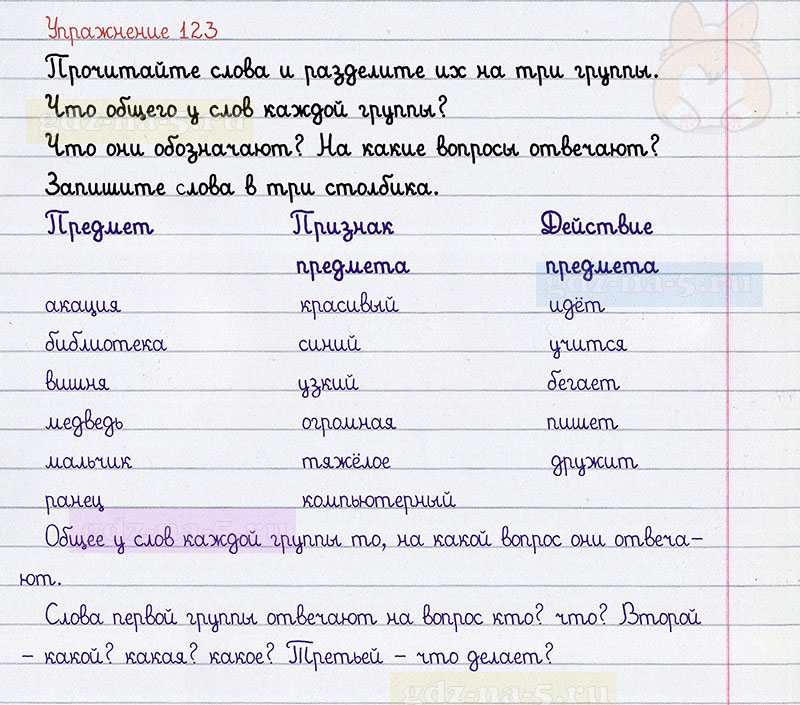 Упражнение 123
Прочитайте слова и разделите их на три группы.
Что общего у слов каждой группы?
gdz-na-5.ru
Что они обозначают? На какие вопросы отвечают?
Запишите слова в три столбика.
Предмет Признак Действие
предмета предмета
gdz-na-5.ru
акация красивый идёт
библиотека синий учится
вишня узкий бегает
медведь огромная пишет
мальчик тяжёлое дружит
ранец компьютерный
gdz-na-5.ru
Общее у слов каждой группы то, на какой вопрос они отвеча-
ют.
Слова первой группы отвечают на вопрос кто? что? Второй
– какой? какая? какое? Третьей – что делает?
gdz-na-5.ru